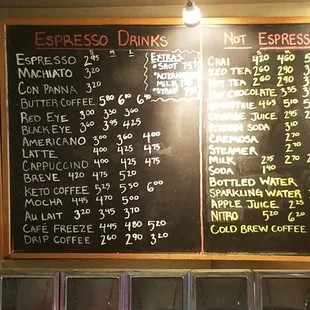 Espresso Drinks
S M L
Espresso 2.95
Machiato 3.20
Con Panna 3.20
Butter Coffee 5.80 6.10 6.40
Red Eye 3.00 3.30 3.60
Black Eye 3.60 3.95 4.25
Americano 3.00 3.60 4.00
Latte 4.00 4.25 4.75
Cappuccino 4.00 4.25 4.75
Breve 4.20 4.75 5.20
Keto Coffee 5.25 5.50 6.00
Mocha 4.45 4.70 5.00
Au Lait 3.20 3.45 3.70
Café Freeze 4.45 4.80 5.20
Drip Coffee 2.60 2.90 3.20
Extras
Shot 75¢
Milk
Not Espress
Chai 4.20 4.60
Iced Tea 2.60 2.90
Hot Tea 2.60 2.90
Hot Chocolate 3.55
Smoothie 4.65
Orange Juice 2.45
Italian Soda 3.10
Cremosa 2.70
Steamer 2.70
Milk 2.35 2.70
Soda 1.40
Bottled Water
Sparkling Water
Apple Juice 2.25
Nitro 5.20 6.20
Cold Brew Coffee